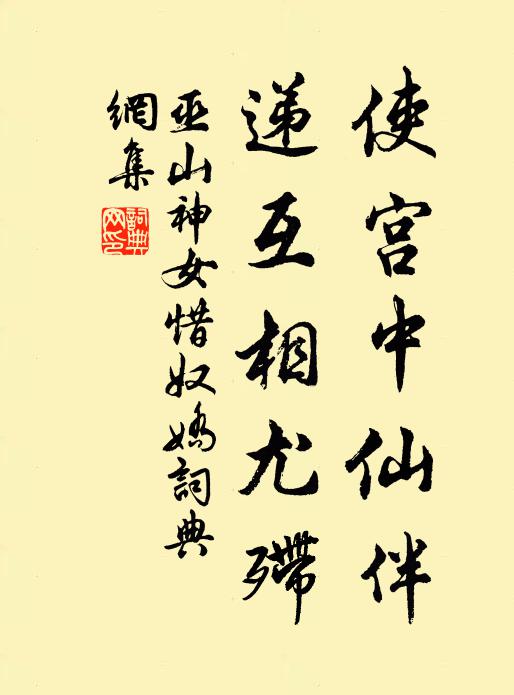 使宫中仙伴
递互相尤殢
巫山神女惜奴娇詞典
網集
詞典
网印